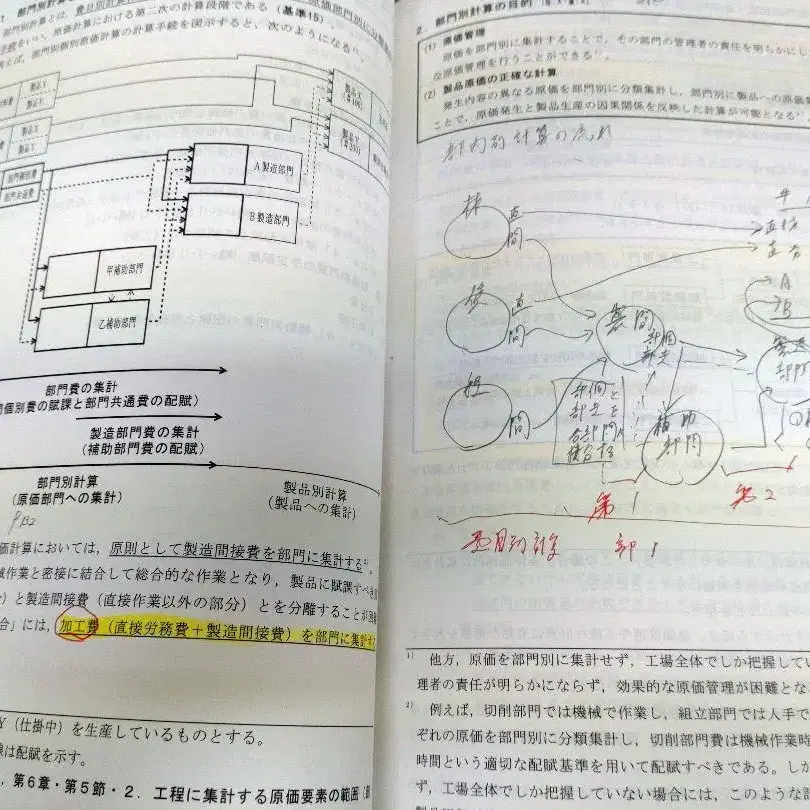 部門別計算とは,
計算における第二次の計算段階である(基準15)。
部門別個別原価計算の計算手続を図示すると,次のようになる
製品X
製品Y
製品X
製品Y
部門個別費
部門共通費
製品X
(#100)
製品Y
(#200)
A製造部門
B製造部門
甲補助部門
乙補助部門
部門費の集計
個別費の賦課と部門共通費の配賦)
製造部門費の集計
(補助部門費の配賦)
部門別計算
(原価部門への集計)
製品別計算
(製品への集計)
価計算においては,原則として製造間接費を部門に集計する
械作業と密接に結合して総合的な作業となり,製品に賦課すべき
)と製造間接費(直接作業以外の部分)とを分離することが
合」には,加工費(直接労務費+製造間接費)を部門に集計す
Y(仕掛中)を生産しているものとする。
線は配賦を示す。
,第6章・第5節・2.工程に集計する原価要素の範囲
2.部門別計算の目的
(1) 原価管理
原価を部門別に集計することで,その部門の管理者の責任を明らかにし
な原価管理を行うことができる
(2) 製品原価の正確な計算
発生内容の異なる原価を部門別に分類集計し,部門別に製品への原価集
ことで,原価発生と製品生産の因果関係を反映した計算が可能となる
部門別計算の流れ
材
直
間
直
間
間
製間
部個
部共
部個と
部共を
各部門へ
集合する
補助
部門
A
B
製造
部門
第1
第2
費目別計算
部1
1) 他方,原価を部門別に集計せず,工場全体でしか把握してい
理者の責任が明らかにならず,効果的な原価管理が困難とな
2) 例えば,切削部門では機械で作業し,組立部門では人手で
ぞれの原価を部門別に分類集計し,切削部門費は機械作業時
時間という適切な配賦基準を用いて配賦すべきである。しか
ず,工場全体でしか把握していない場合には,このような計